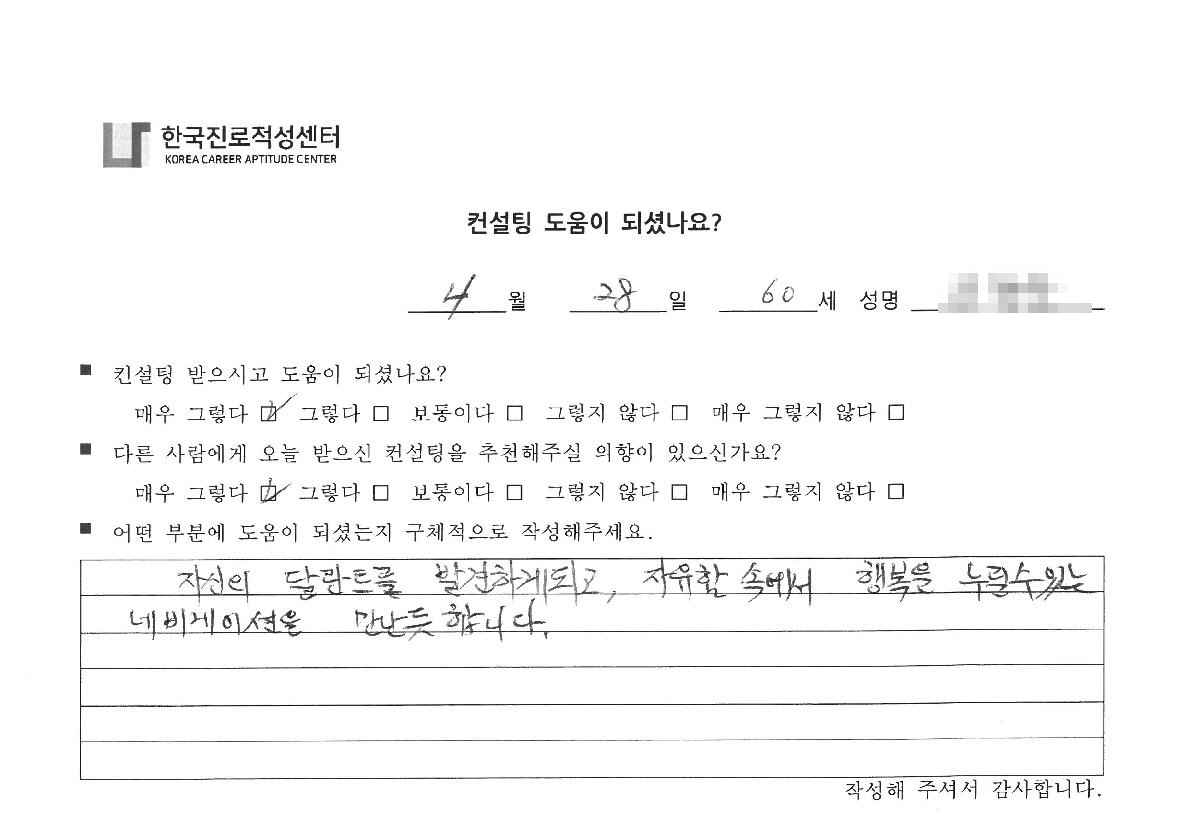 한국진로적성센터
KOREA CAREER APTITUDE CENTER
컨설팅 도움이 되셨나요?
4 월 28 일 60 세 성명
■ 컨설팅 받으시고 도움이 되셨나요?
매우 그렇다 ☑ 그렇다 □ 보통이다 □ 그렇지 않다 □ 매우 그렇지 않다 □
■ 다른 사람에게 오늘 받으신 컨설팅을 추천해주실 의향이 있으신가요?
매우 그렇다 ☑ 그렇다 □ 보통이다 □ 그렇지 않다 □ 매우 그렇지 않다 □
■ 어떤 부분에 도움이 되셨는지 구체적으로 작성해주세요.
자신의 달란트를 발견하게되고, 자유함 속에서 행복을 누릴수있는
네비게이션을 만난듯 합니다.
작성해 주셔서 감사합니다.